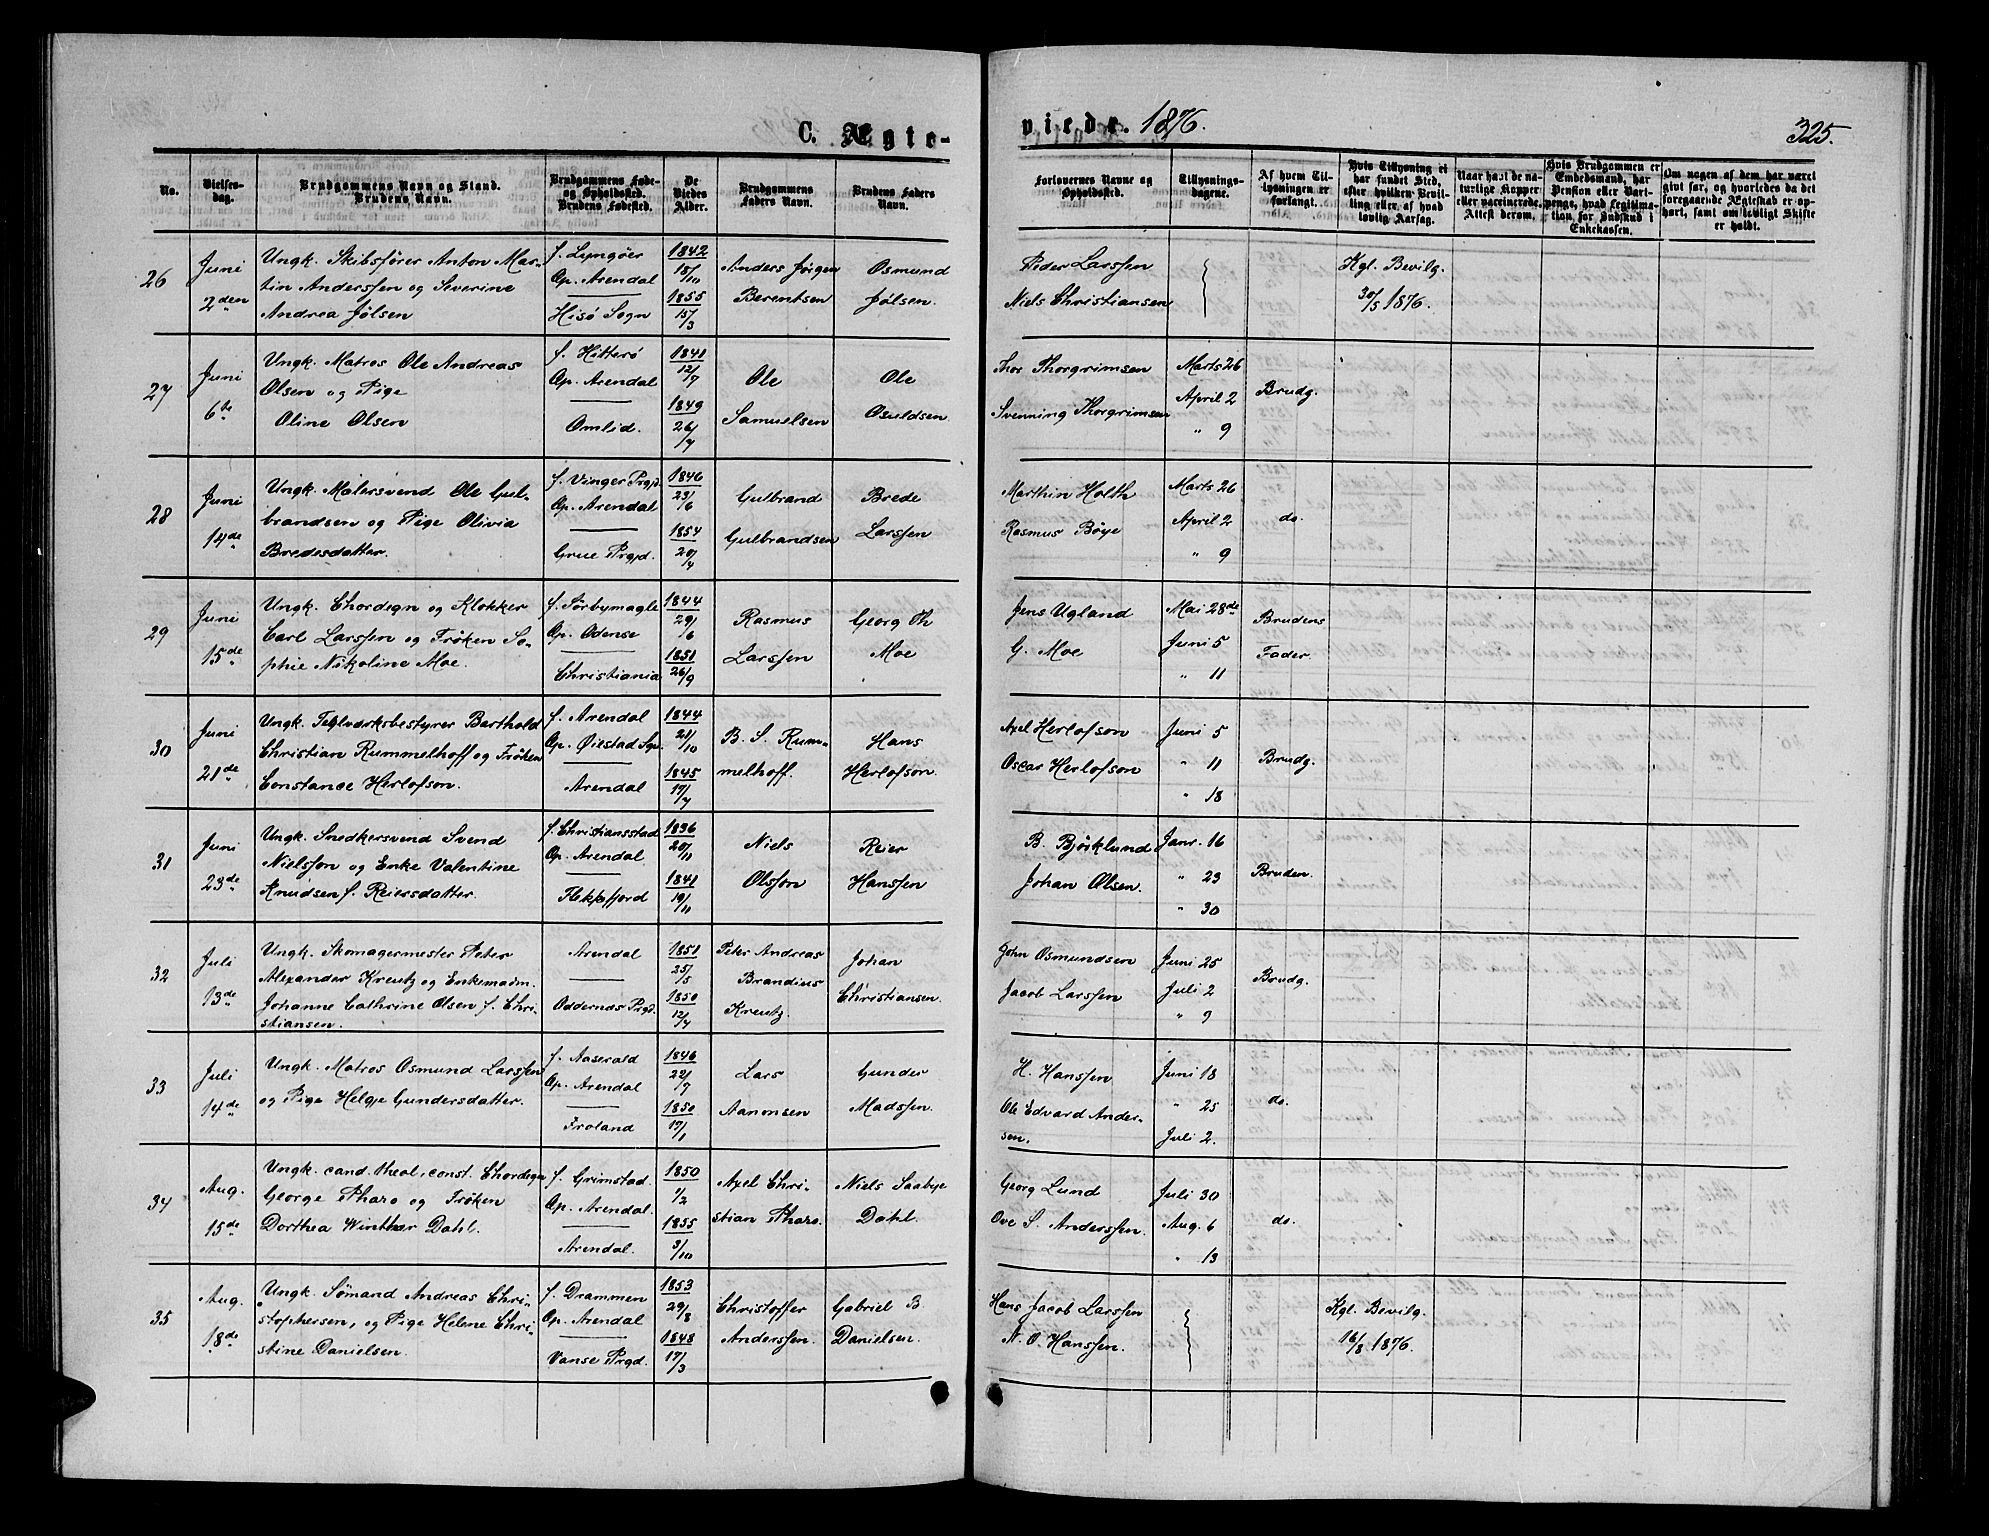 C. Ægte-
viede. 1876.
325.
No.
Vielses-
dag.
Brudgommens Navn og Stand.
Brudens Navn.
Brudgommens Føde-
og Opholdssted.
Brudens Fødested.
De
Viedes
Alder.
Brudgommens
Faders Navn.
Brudens Faders
Navn.
Forlovernes Navne og
Opholdssted.
Tillysnings-
dagene.
Af hvem Til-
lysningen er
forlangt.
Hvis Tillysning ei
har fundet Sted,
efter hvilken Bevil-
ling eller af hvad
lovlig Aarsag.
Naar havt de na-
turlige Kopper
eller vaccinerede,
Attest derom.
Hvis Brudgommen er
Embedsmand, har
Pension eller Vart-
penge, hvad Legitima-
tion for Indskud i
Enkekassen.
Om nogen af dem har været
givt før, og hvorledes da det
foregaaende Ægteskab er op-
hørt, samt om lovligt Skifte
er holdt.
26
Juni
2den
Ungk. Skibsfører Anton Mar-
tin Anderssen og Severine
Andrea Jølsen
f. Lyngöer
Op. Arendal
Hisö Sogn
1842
15/10
1855
15/3
Anders Jørgen
Berentsen
Osmund
Jølsen.
Peder Larssen
Niels Christiansen
Kgl. Bevilg.
30/5 1876.
27
Juni
6te
Ungk. Matros Ole Andreas
Olsen og Pige
Oline Olsen
f. Hitterö
Op. Arendal
Omlid.
1841
12/7
1849
26/7
Ole
Samuelsen
Ole
Osuldsen
Thor Thorgrimsen
Svenning Thorgrimsen
Marts 26
April 2
" 9
Brudg.
28
Juni
14de
Ungk. Malersvend Ole Gul-
brandsen og Pige Olivia
Bredesdatter.
f. Vinger Prgjd.
Op. Arendal
Grue Prgjd.
1846
23/6
1854
20/4
Gulbrand
Gulbrandsen
Brede
Larssen
Marthin Holth
Rasmus Böye
Marts 26
April 2
" 9
do.
29
Juni
15de
Ungk. Chordegn og Klokker
Carl Larssen og Frøken So-
phie Nikoline Moe.
f. Sørbymagle
Op. Odense
Christiania
1844
29/6
1851
26/9
Rasmus
Larssen
Georg Th
Moe
Jens Ugland
G. Moe
Mai 28de
Juni 5
" 11
Brudens
Fader.
30
Juni
21de
Ungk. Teglværksbestyrer Barthold
Christian Rummelhoff og Frøken
Constance Herlofson.
f. Arendal
Op. Øiestad Sgn.
Arendal
1844
21/10
1845
17/7
B. S. Rum-
melhoff.
Hans
Herlofson.
Axel Herlofson
Oscar Herlofson
Juni 5
" 11
" 18
Brudg.
31
Juni
23de
Ungk. Snedkersvend Svend
Nielsson og Enke Valentine
Knudsen f. Reiersdatter.
f. Christiansstad
Op. Arendal
Flekkefjord
1836
20/11
1841
19/11
Niels
Olsson
Reier
Hanssen
B. Björklund
Johan Olsen.
Janr. 16
" 23
" 30
Bruden.
32
Juli
13de
Ungk. Skomagermester Peter
Alexander Kreutz og Enkemadm.
Johanne Cathrine Olsen f. Chri-
stiansen.
Arendal
Oddernes Prgd.
1851
25/5
1850
12/4
Peter Andreas
Brandius
Kreutz.
Johan
Christiansen.
John Osmundsen
Jacob Larssen
Juni 25
Juli 2
" 9
Brudg.
33
Juli
14de
Ungk. Matros Osmund Larssen
og Pige Helgje Gundersdatter.
f. Aaserald
Op. Arendal
Froland
1846
22/7
1850
17/1
Lars
Aanonsen
Gunder
Madssen.
H. Hanssen
Ole Edvard Ander-
sen.
Juni 18
" 25
Juli 2.
do.
34
Aug.
15de
Ungk. cand. theol. const. Chordegn
George Tharo og Frøken
Dorthea Winther Dahl.
f. Grimstad.
Op. Arendal.
Arendal.
1850
1/2
1855
3/10
Axel Chri-
stian Tharo.
Niels Saabye
Dahl.
Georg Lund
Ove S. Anderssen.
Juli 30
Aug. 6
" 13
do.
35
Aug.
18de
Ungk. Sømand Andreas Chri-
stophersen, og Pige Helene Chri-
stine Danielsen.
f. Drammen
Op. Arendal
Vanse Prgd.
1853
29/8
1848
17/3
Christoffer
Anderssen.
Gabriel B.
Danielsen.
Hans Jacob Larssen
N. O. Hanssen.
Kgl. Bevilg.
16/8 1876.